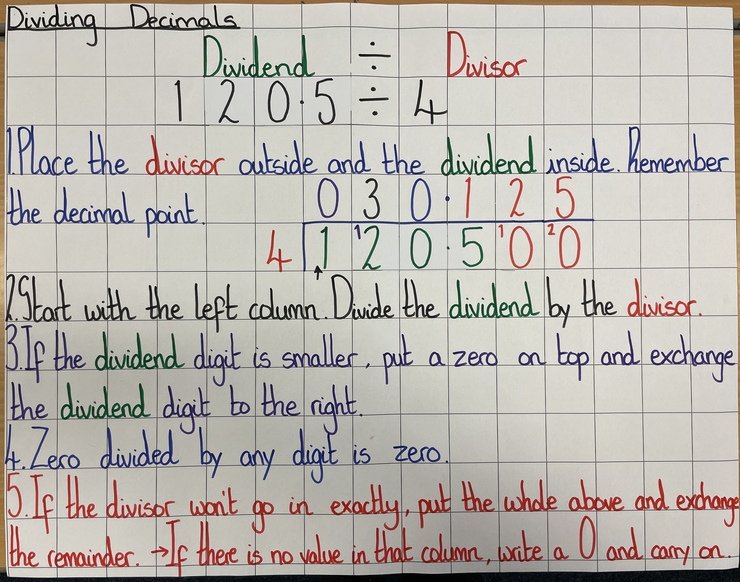 Dividing Decimals
Dividend ÷ Divisor
120.5 ÷ 4
1. Place the divisor outside and the dividend inside. Remember
the decimal point.
030.125
4 1 ¹2 0.5 ¹0 ²0
2. Start with the left column. Divide the dividend by the divisor.
3. If the dividend digit is smaller, put a zero on top and exchange
the dividend digit to the right.
4. Zero divided by any digit is zero.
5. If the divisor won't go in exactly, put the whole above and exchange
the remainder. → If there is no value in that column, write a 0 and carry on.